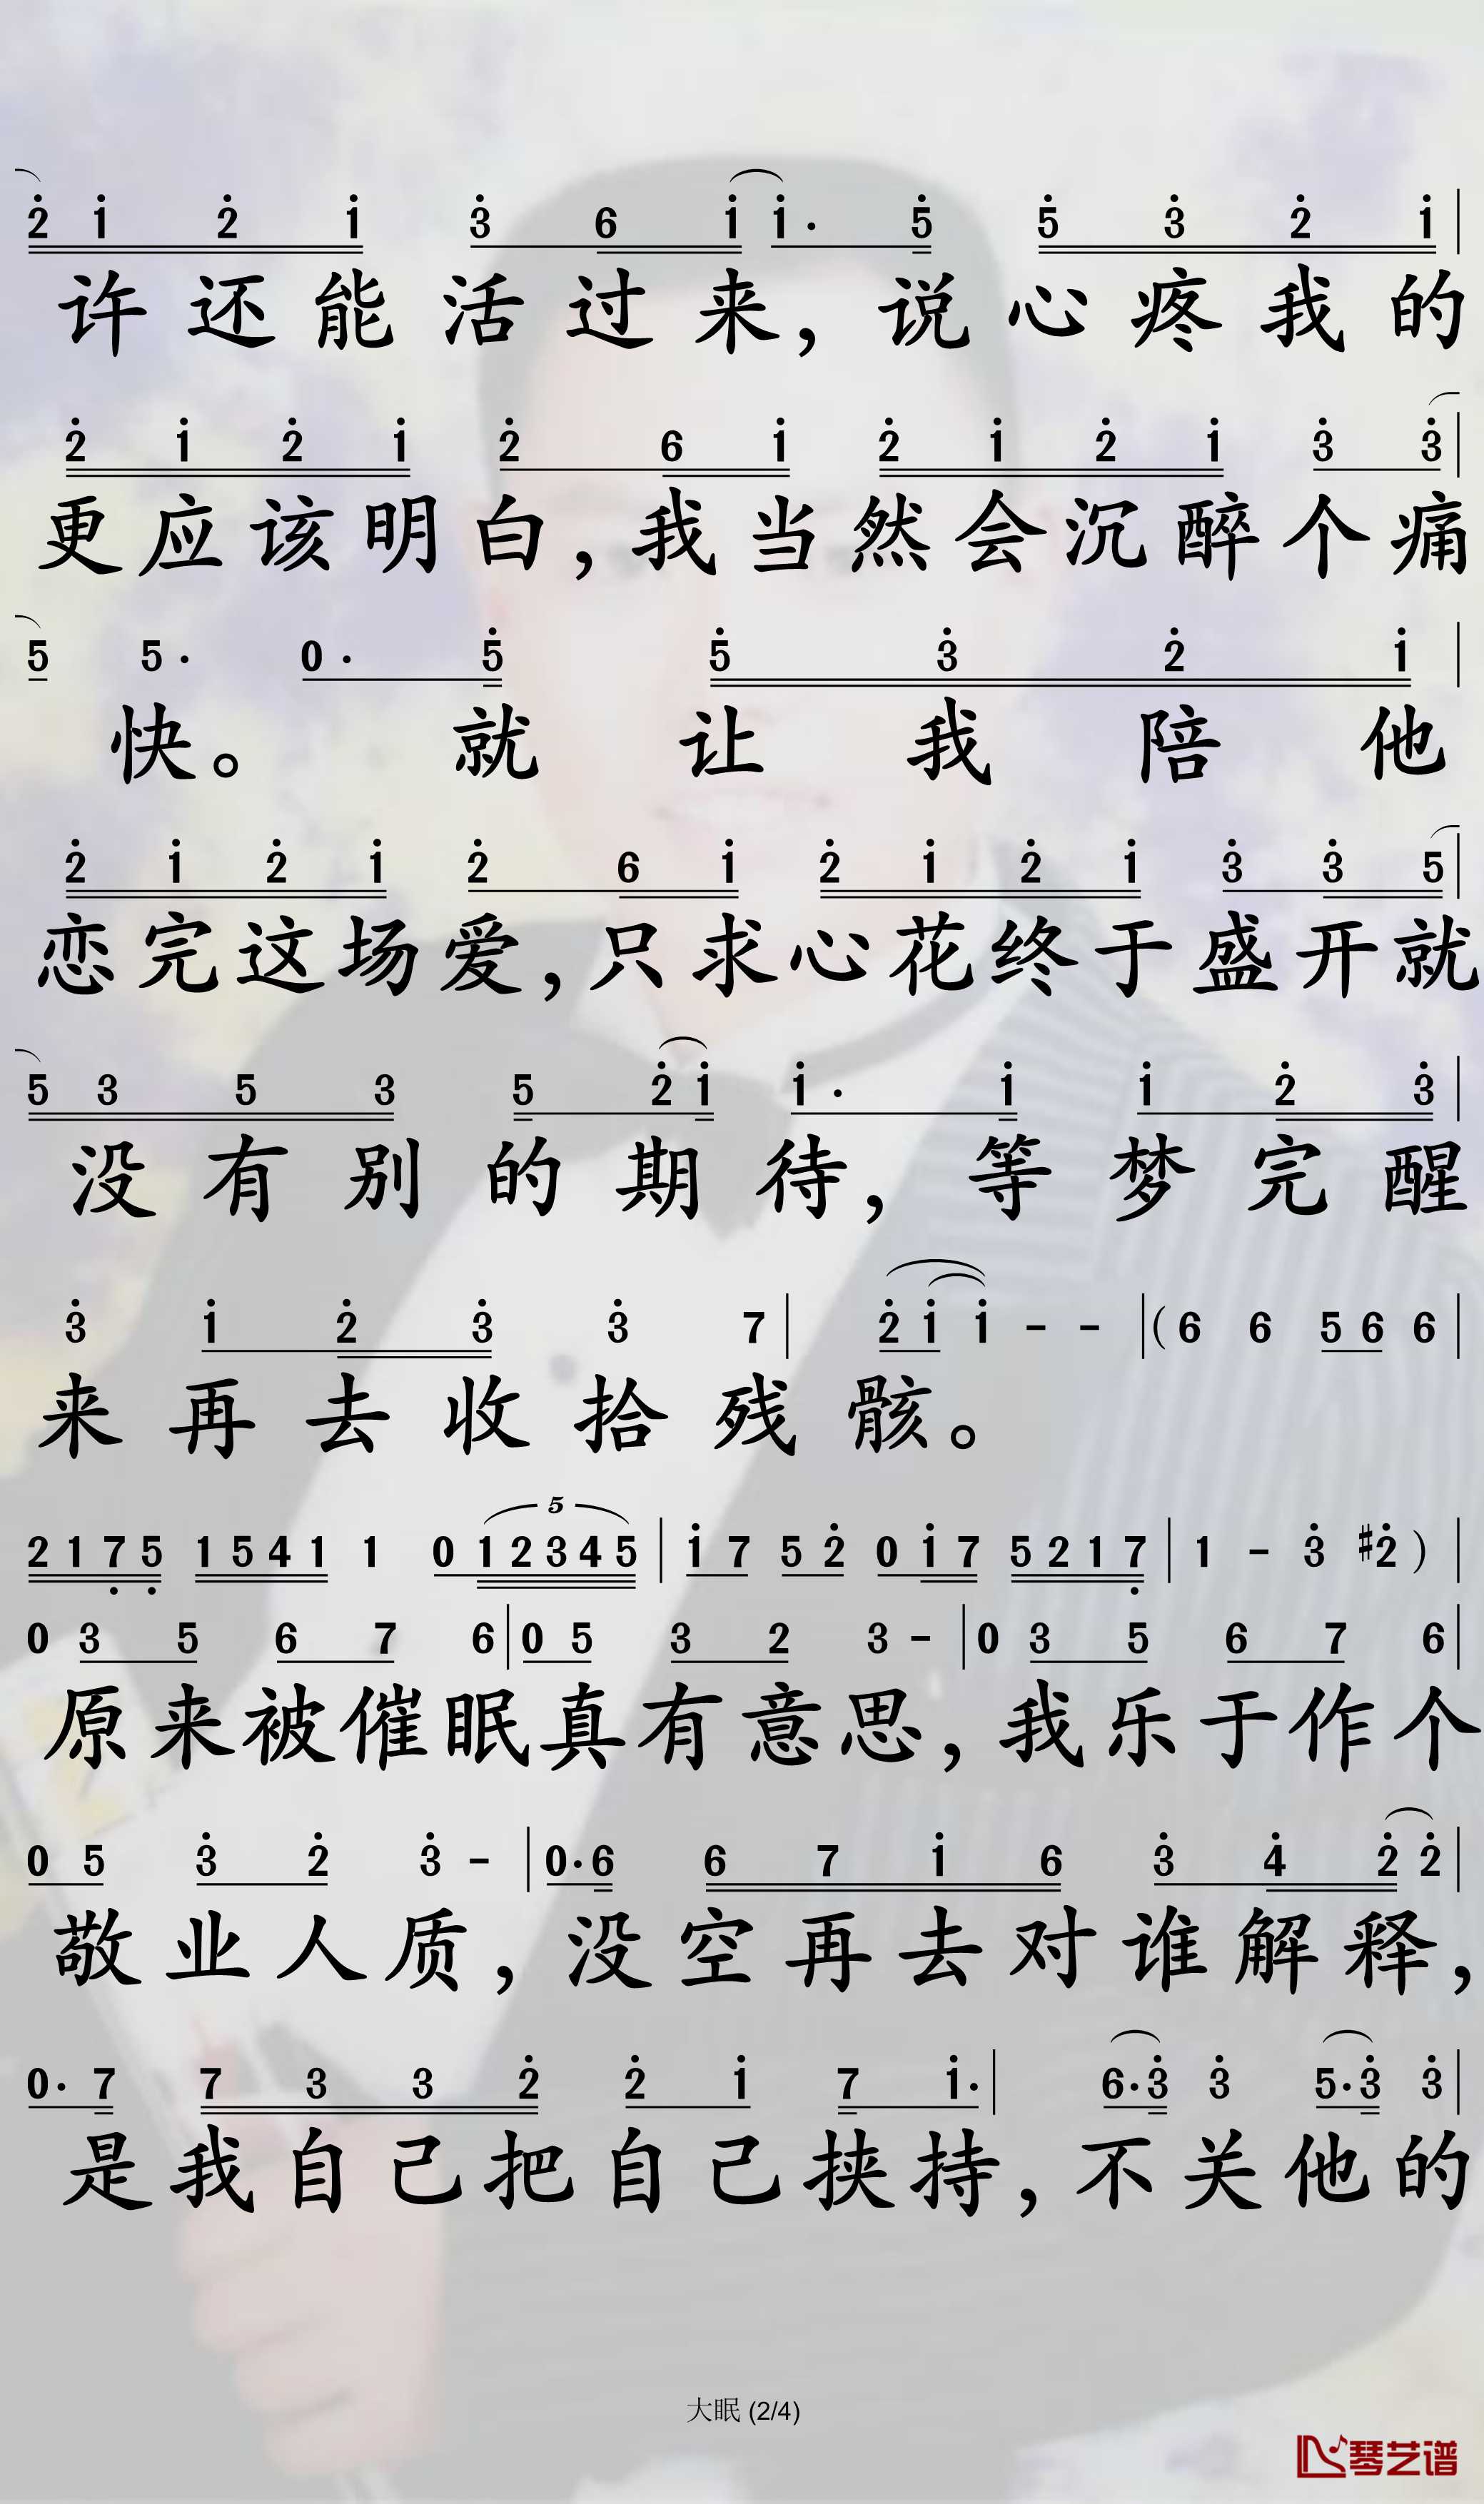 2̇ 1̇ 2̇ 1̇ 3̇ 6 1̇ 1̇· 5̇ 5̇ 3̇ 2̇ 1̇ |
许还能活过来，说心疼我的
2̇ 1̇ 2̇ 1̇ 2̇ 6 1̇ 2̇ 1̇ 2̇ 1̇ 3̇ 3̇ |
更应该明白，我当然会沉醉个痛
5 5· 0· 5̇ 5̇ 3̇ 2̇ 1̇ |
快。就让我陪他
2̇ 1̇ 2̇ 1̇ 2̇ 6 1̇ 2̇ 1̇ 2̇ 1̇ 3̇ 3̇ 5 |
恋完这场爱，只求心花终于盛开就
5 3 5 3 5 2̇ 1̇ 1̇· 1̇ 1̇ 2̇ 3̇ |
没有别的期待，等梦完醒
3̇ 1̇ 2̇ 3̇ 3̇ 7 | 2̇ 1̇ 1̇ - - | (6 6 5 6 6 |
来再去收拾残骸。
5
2 1 7̣ 5̣ 1 5 4 1 1 0 1 2 3 4 5 | 1̇ 7 5 2̇ 0 1̇ 7 5 2 1 7̣ | 1 - 3̇ #2̇ ) |
0 3 5 6 7 6 | 0 5 3 2 3 - | 0 3 5 6 7 6 |
原来被催眠真有意思，我乐于作个
0 5 3̇ 2̇ 3̇ - | 0· 6 6 7 1̇ 6 3̇ 4̇ 2̇ 2̇ |
敬业人质，没空再去对谁解释，
0· 7 7 3 3 2̇ 2̇ 1̇ 7 1̇· | 6· 3̇ 3̇ 5· 3̇ 3̇ |
是我自己把自己挟持，不关他的
大眠 (2/4)
琴艺谱